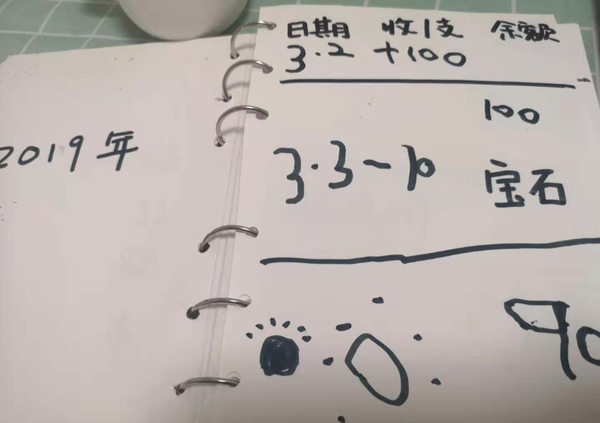 2019年
日期 收支 余额
3.2 +100
100
3.3-10 宝石
90